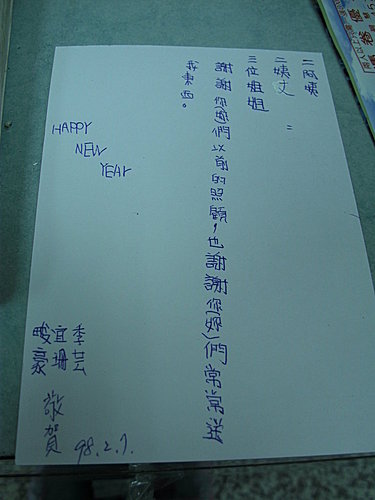 二阿姨
二姨丈
三位姐姐
謝謝你(您)們以前的照顧，也謝謝你(妳)們常常送
我東西。
HAPPY
NEW
YEAR
季芸
宜珊
畯豪
敬賀
98.2.1.